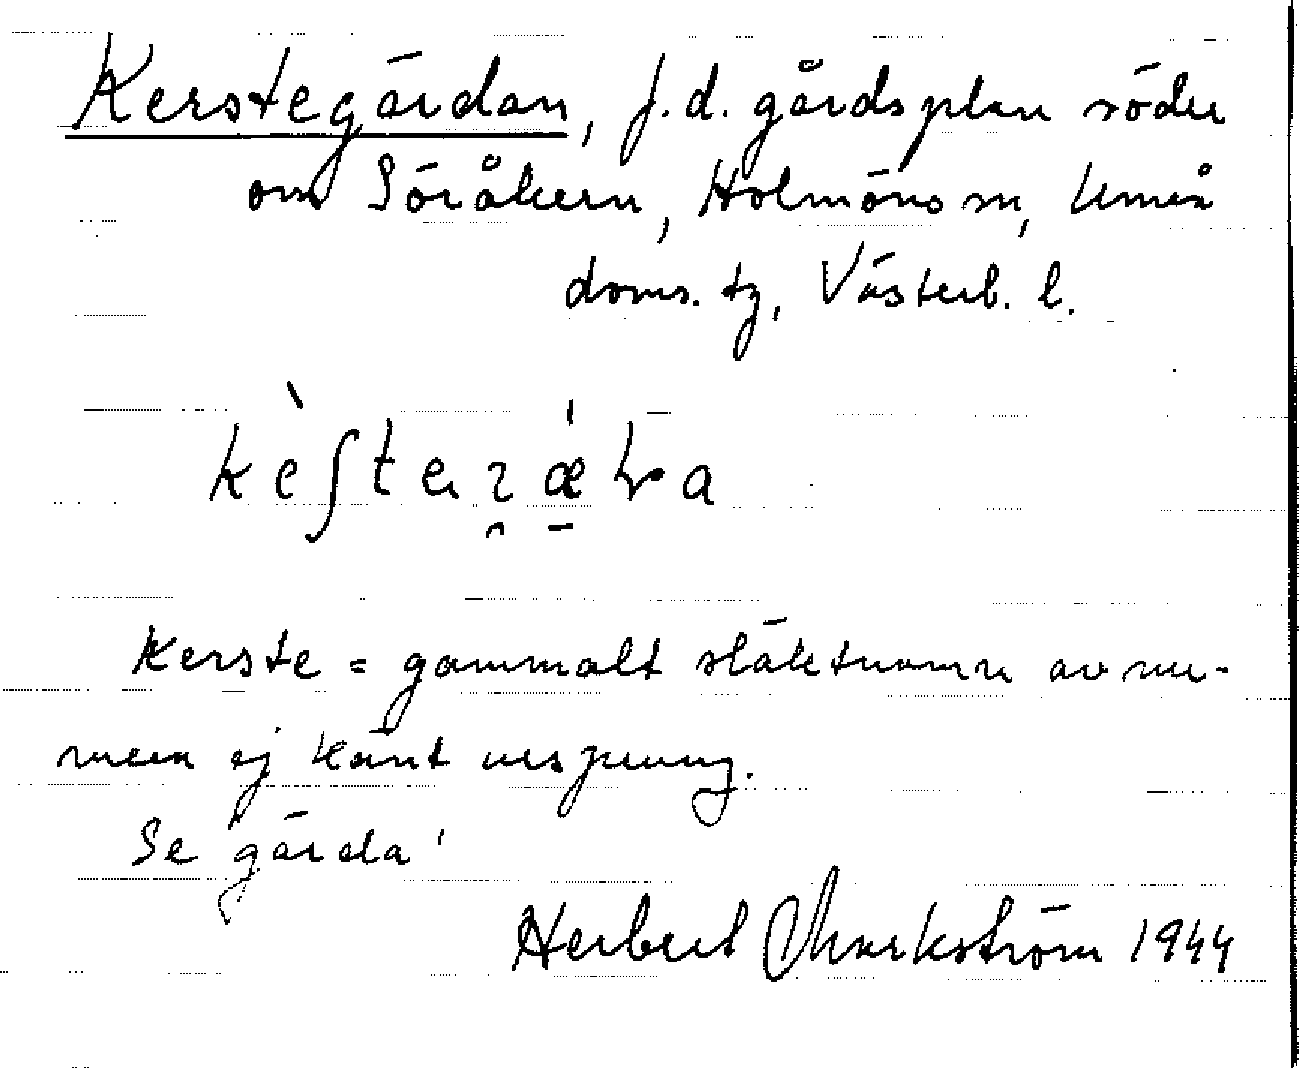 Kerstegärdan, f.d. gårdsplan söder
om Söråkern, Holmöns sn, Umeå
doms. tg, Västerb. l.
Kerste = gammalt släktnamn av nu-
mera ej känt ursprung.
Se gärda!
Herbert Markström 1944